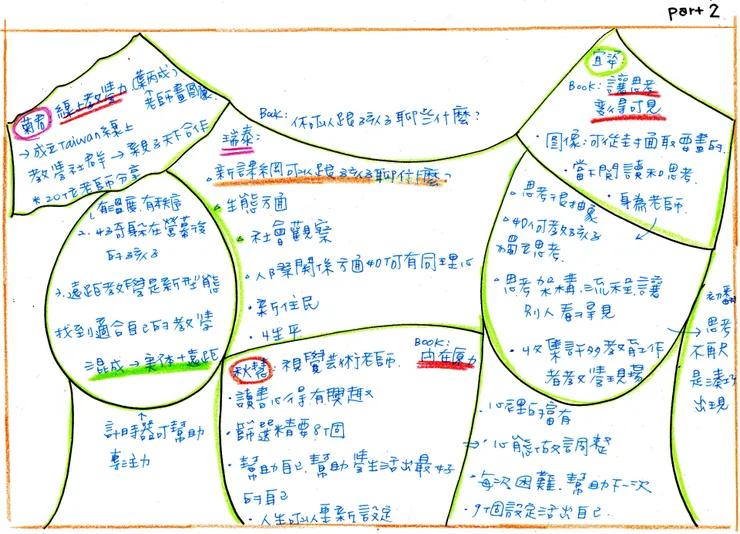 part 2
菊君 線上教學力 (葉丙成)
老師畫圖
→成立Taiwan線上
教學社群 → 親子天下合作
*20位老師分享
1.有溫度.有秩序
2.好奇躲在螢幕後
的孩子
3.遠距教學是新型態
找到適合自己的教學
混成→實体+遠距
計時器可幫助
專注力
Book: 你可以跟孩子聊些什麼?
瑞泰:
新課綱可以跟孩子聊什麼?
生態方面
社會觀察
人際關係方面如何有同理心
新住民
生平
秋慧: 視覺藝術老師.
Book:
內在原力
讀書心得有獎趣
篩選精要8個
幫助自己.幫助學生活出最好
的自己
人生可以重新設定
宜芬
Book: 讓思考
變得可見
圖像:可從封面取要畫的.
當下閱讀和思考.
身為老師.
思考很抽象
如何教孩子
獨立思考.
思考架構.流程.讓
別人看得見
收集許多教育工作
者教學現場
→ 思考
不再只
是湊巧
出現
心裡的富有
⇒ 心態故調整
每次困難.幫助下一次
9個設定活出自己.